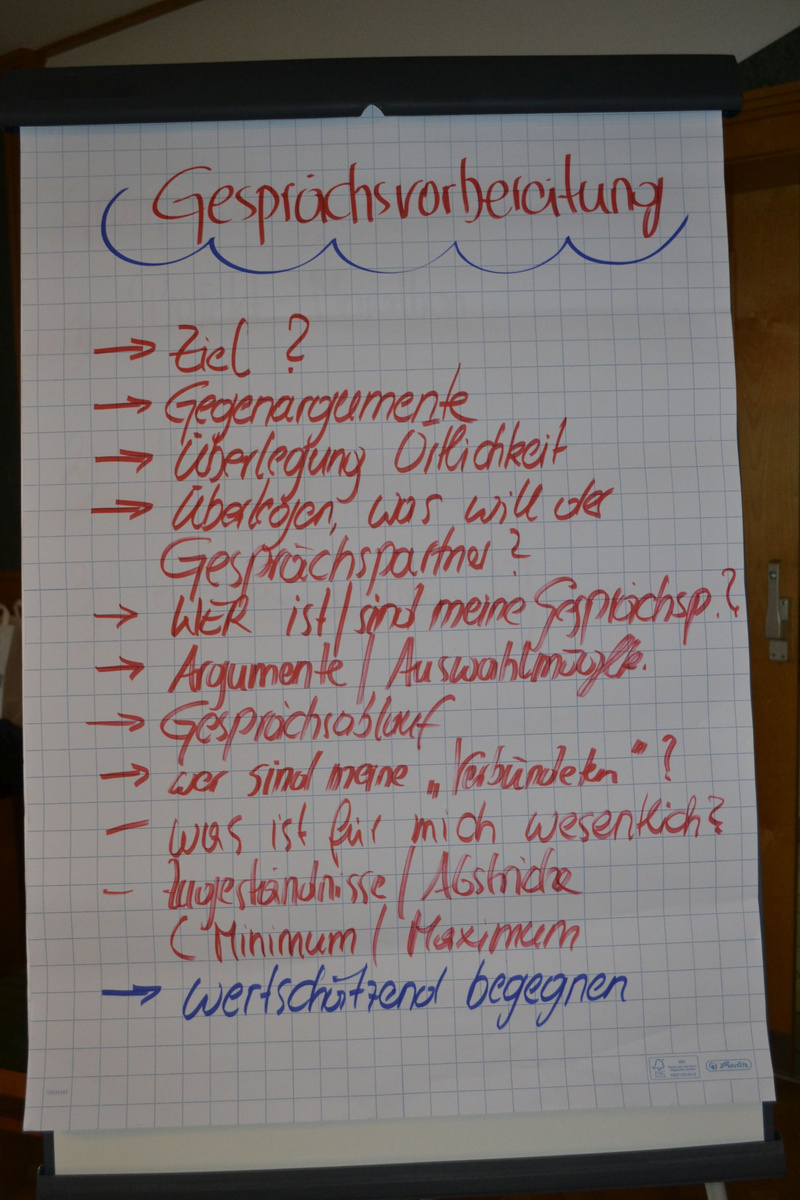 Gesprächsvorbereitung
→ Ziel ?
→ Gegenargumente
→ Überlegung Örtlichkeit
→ Überlegen, was will der
Gesprächspartner ?
→ WER ist / sind meine Gesprächsp.?
→ Argumente / Auswahlmöglk.
→ Gesprächsablauf
→ wer sind meine „Verbündeten" ?
– was ist für mich wesentlich?
– Zugeständnisse / Abstriche
( Minimum / Maximum
→ wertschätzend begegnen